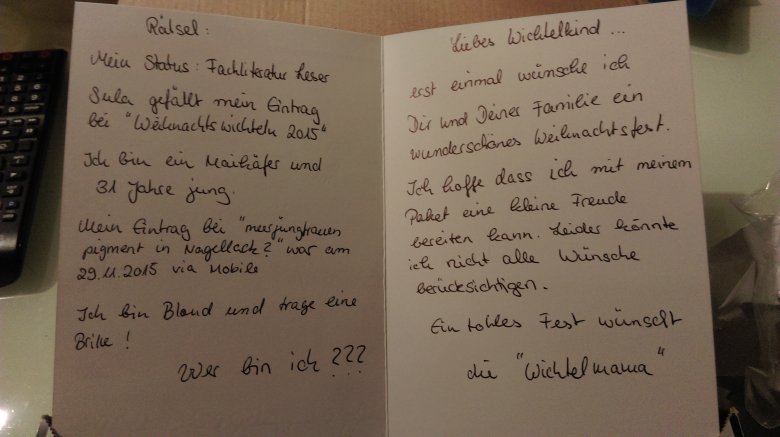 Rätsel:
Mein Status: Fachliteratur Leser
Sula gefällt mein Eintrag
bei "Weihnachtswichteln 2015"
Ich bin ein Maikäfer und
31 Jahre jung.
Mein Eintrag bei "meerjungfrauen
pigment in Nagellack?" war am
29.11.2015 via Mobile
Ich bin Blond und trage eine
Brille!
Wer bin ich ???
Liebes Wichtelkind...
erst einmal wünsche ich
Dir und Deiner Familie ein
wunderschönes Weihnachtsfest.
Ich hoffe dass ich mit meinem
Paket eine kleine Freude
bereiten kann. Leider könnte
ich nicht alle Wünsche
berücksichtigen.
Ein tolles Fest wünscht
die "Wichtelmama"